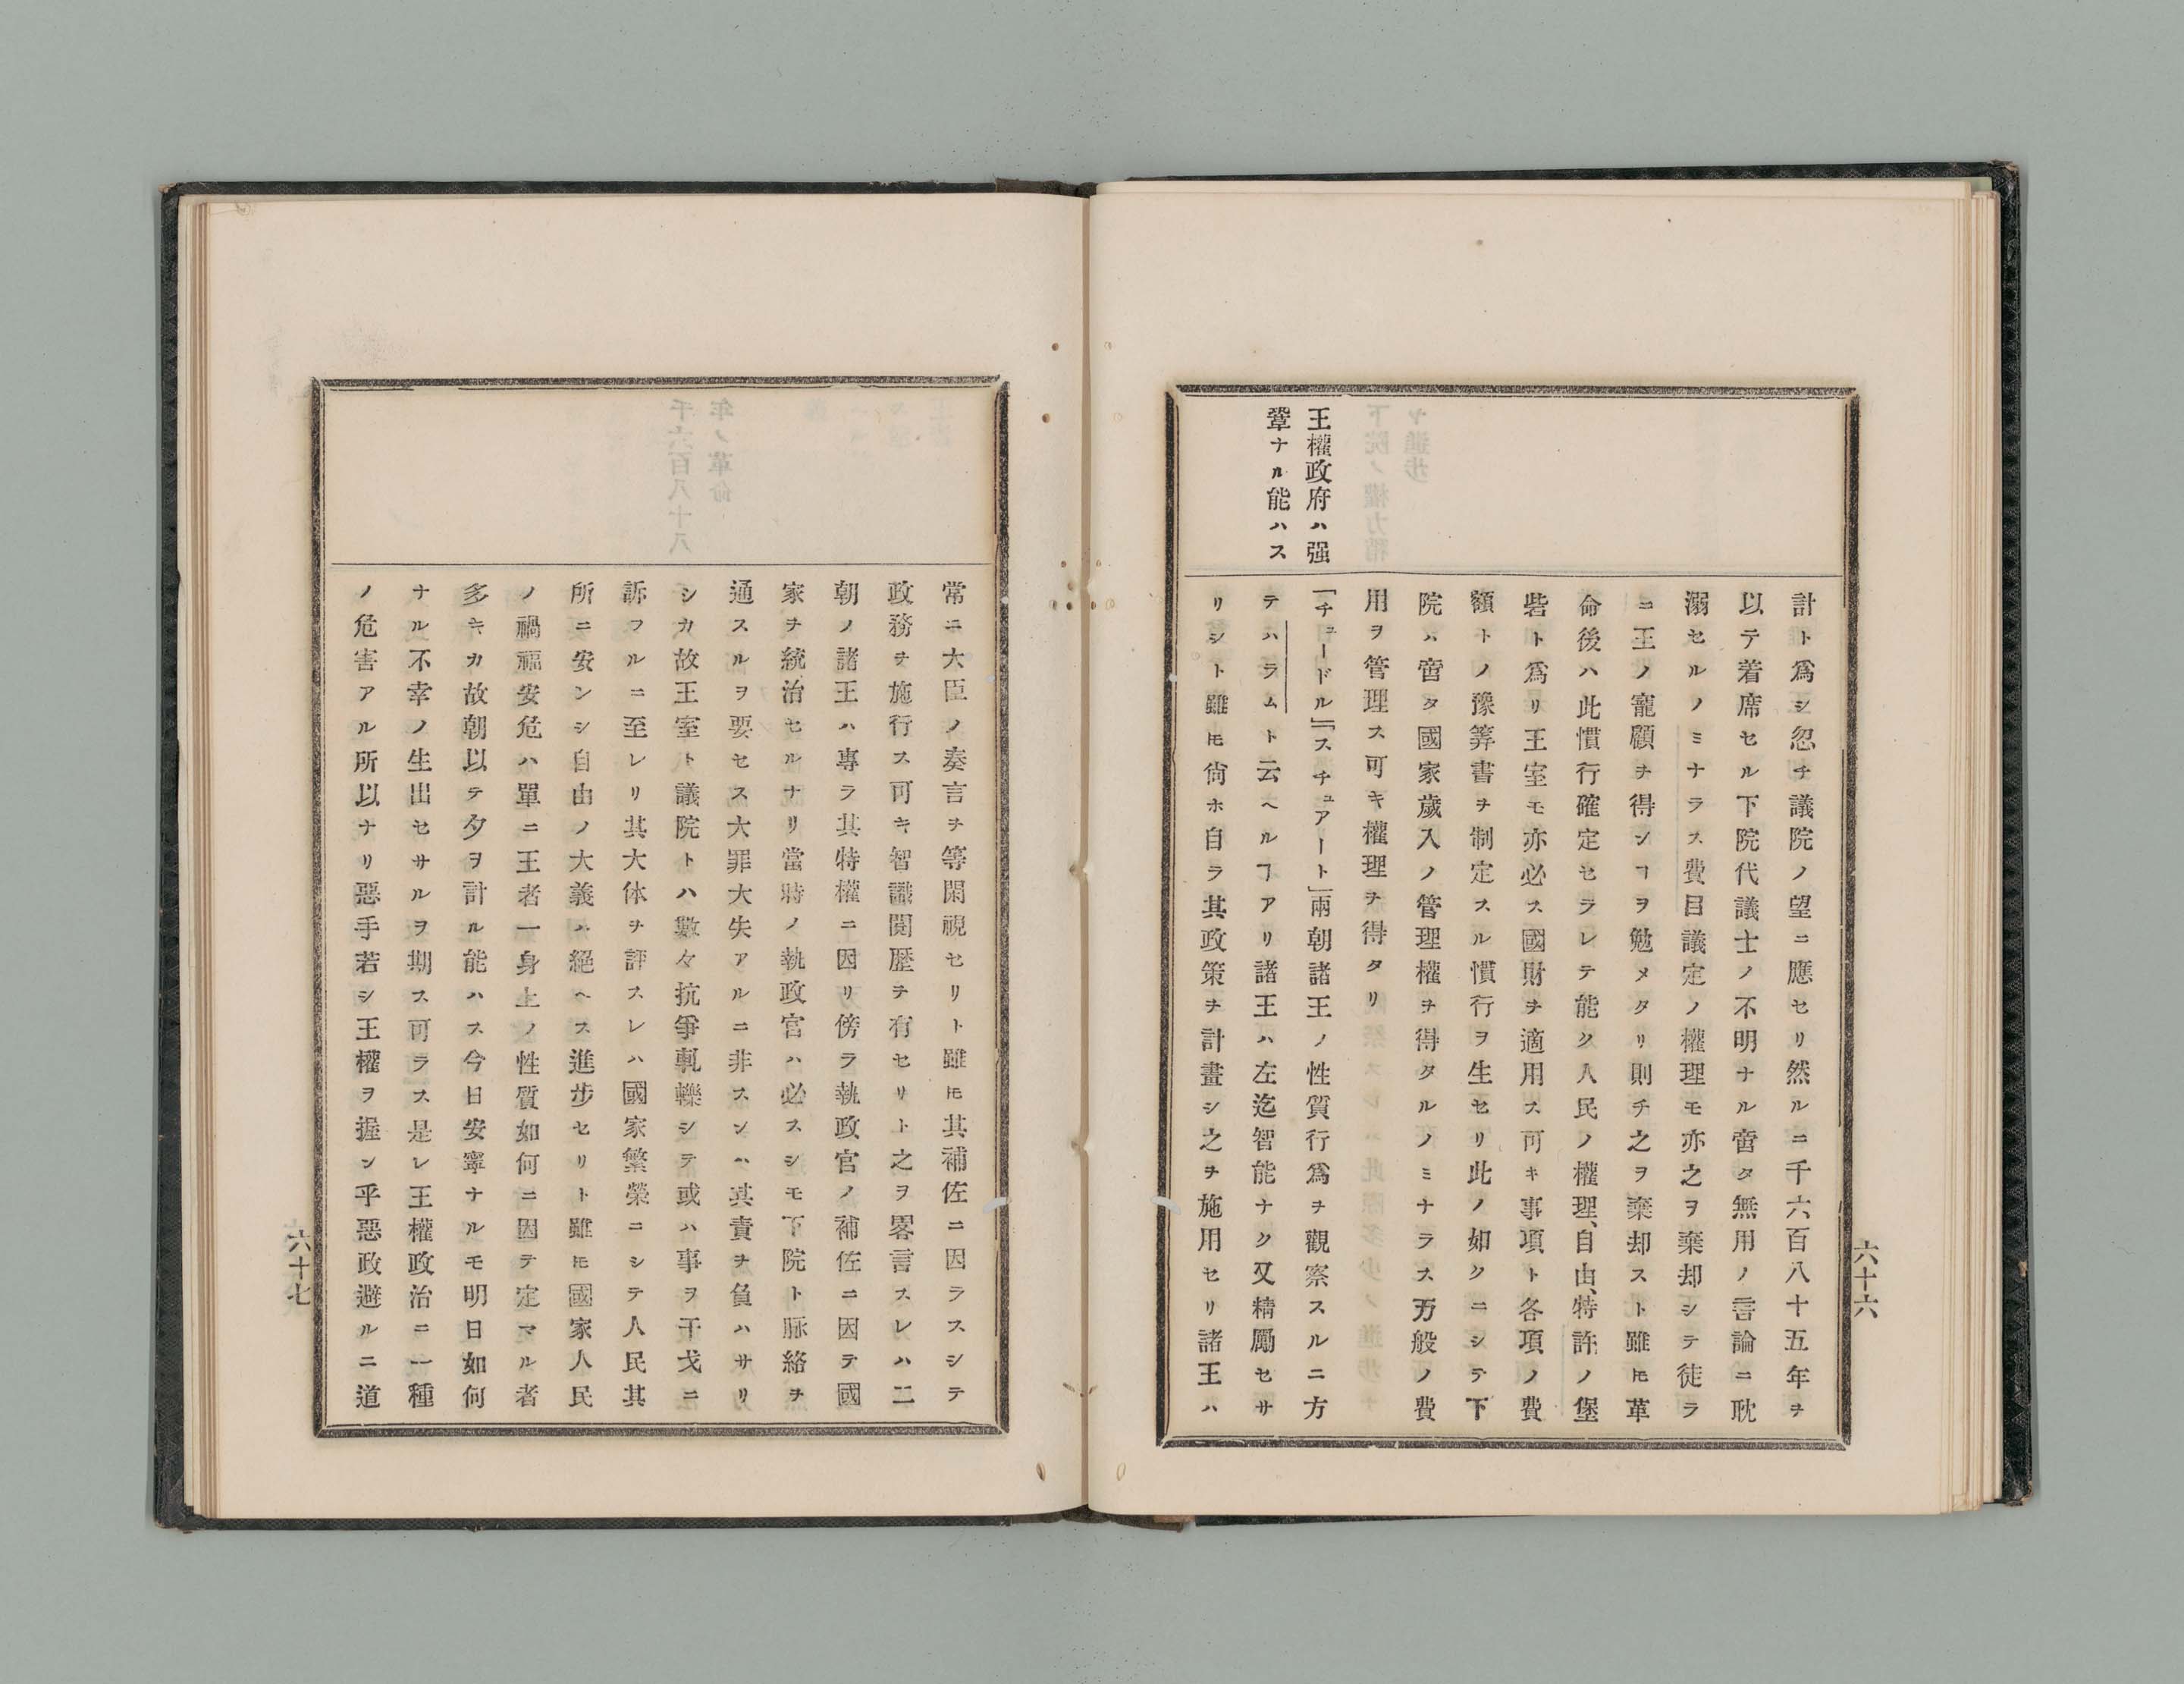 六十六
王權政府ハ强
鞏ナル能ハス
計ト爲シ忽チ議院ノ望ニ應セリ然ルニ千六百八十五年ヲ
以テ着席セル下院代議士ノ不明ナル啻タ無用ノ言論ニ耽
溺セルノミナラス費目議定ノ權理モ亦之ヲ棄却シテ徒ラ
ニ王ノ寵顧ヲ得ンヿヲ勉メタリ則チ之ヲ棄却スト雖𪜈革
命後ハ此慣行確定セラレテ能ク人民ノ權理、自由、特許ノ堡
砦ト爲リ王室モ亦必ス國財ヲ適用ス可キ事項ト各項ノ費
額トノ豫筭書ヲ制定スル慣行ヲ生セリ此ノ如クニシテ下
院ハ啻タ國家歲入ノ管理權ヲ得タルノミナラス万般ノ費
用ヲ管理ス可キ權理ヲ得タリ
「チュードル」「スチュアート」兩朝諸王ノ性質行爲ヲ觀察スルニ方
テハラムト云ヘルヿアリ諸王ハ左迄智能ナク又精勵セサ
リシト雖𪜈尙ホ自ラ其政策ヲ計畫シ之ヲ施用セリ諸王ハ
常ニ大臣ノ奏言ヲ等閑視セリト雖𪜈其補佐ニ因ラスシテ
政務ヲ施行ス可キ智識閱歷ヲ有セリト之ヲ畧言スレハ二
朝ノ諸王ハ專ラ其特權ニ因リ傍ラ執政官ノ補佐ニ因テ國
家ヲ統治セルナリ當時ノ執政官ハ必スシモ下院ト脈絡ヲ
通スルヲ要セス大罪大失アルニ非スンハ其責ヲ負ハサリ
シカ故王室ト議院トハ數々抗爭軋轢シテ或ハ事ヲ干戈ニ
訴フルニ至レリ其大体ヲ評スレハ國家繁榮ニシテ人民其
所ニ安ンシ自由ノ大義ハ絕ヘス進步セリト雖𪜈國家人民
ノ禍福安危ハ單ニ王者一身上ノ性質如何ニ因テ定マル者
多キカ故朝以テ夕ヲ計ル能ハス今日安寧ナルモ明日如何
ナル不幸ノ生出セサルヲ期ス可ラス是レ王權政治ニ一種
ノ危害アル所以ナリ惡手若シ王權ヲ握ン乎惡政避ルニ道
六十七